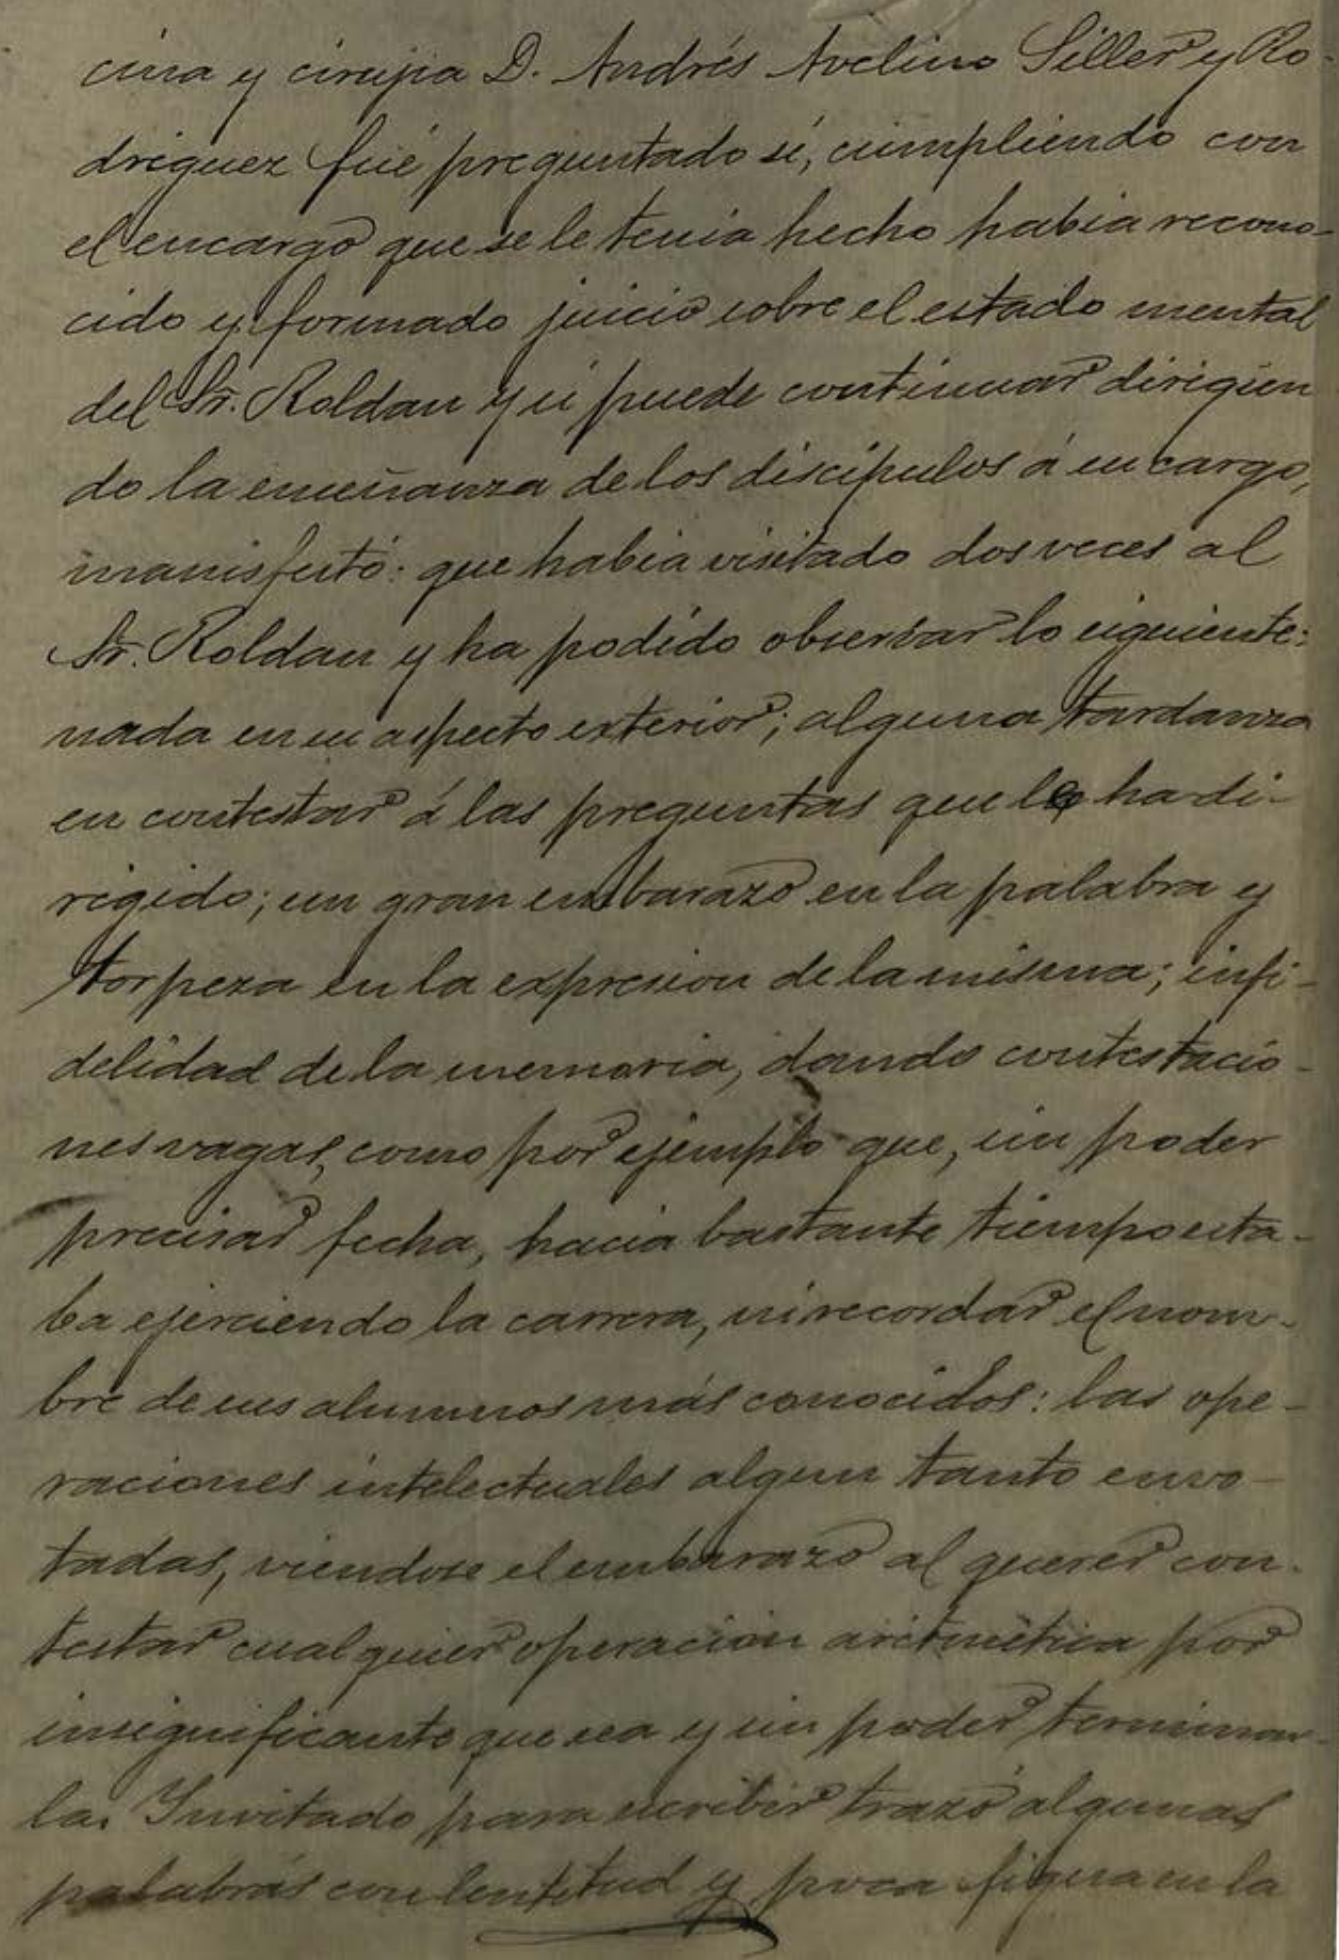 cina y cirujia D. Andrés Avelino Siller y Ro-
driguez fué preguntado si, cumpliendo con
el encargo que se le tenia hecho habia recono-
cido y formado juicio sobre el estado mental
del Sr. Roldan y si puede continuar dirigien
do la enseñanza de los discipulos á su cargo,
manisfestó: que habia visitado dos veces al
Sr. Roldan y ha podido observar lo siguiente:
nada en su aspecto exterior; alguna tardanza
en contestar á las preguntas que le ha di-
rigido; un gran embarazo en la palabra y
torpeza en la expresion de la misma; infi-
delidad de la memoria, dando contestacio-
nes vagas, como por ejemplo que, sin poder
precisar fecha, hacia bastante tiempo esta-
ba ejerciendo la carrera, ni recordar el nom-
bre de sus alumnos más conocidos: las ope-
raciones intelectuales algun tanto envo-
tadas, viendose el embarazo al querer con-
testar cualquier operación aritmética por
insignificante que sea y sin poder terminar-
la. Invitado para escribir trazó algunas
palabras con lentitud y poca figura en la